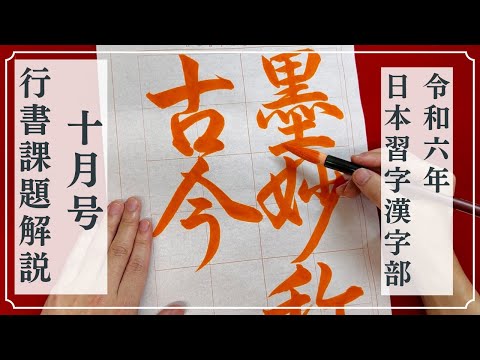 令和六年
日本習字漢字部
墨妙称
古今
十月号
行書課題解説